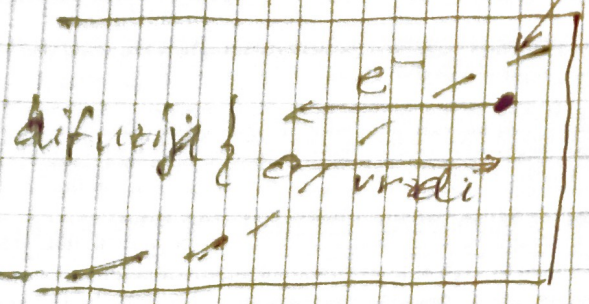 e⁻
difuzija }
vrzeli